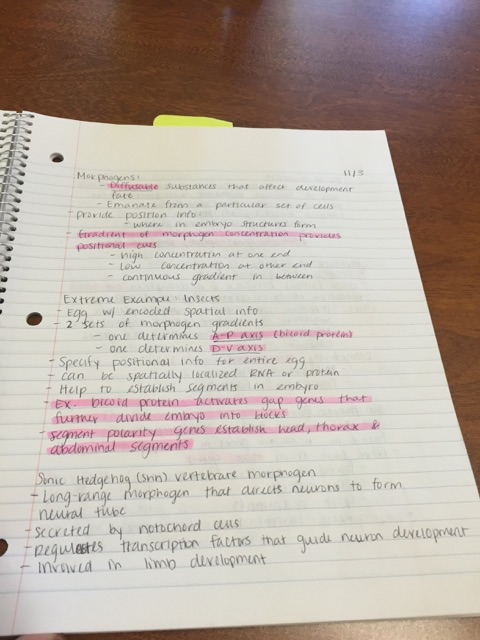 11/3
Morphogens:
- Diffusable substances that affect development
fate
- Emanate from a particular set of cells
- provide position info
- where in embryo structures form
- Gradient of morphogen concentration provides
positional cues
- high concentration at one end
- low concentration at other end
- continuous gradient in between
Extreme Example: Insects
- Egg w/ encoded spatial info
- 2 sets of morphogen gradients
- one determines A-P axis (bicoid protein)
- one determines D-V axis
- Specify positional info for entire egg
- can be spatially localized RNA or protein
- Help to establish segments in embryo
- Ex. bicoid protein activates gap genes that
further divide embryo into blocks
- segment polarity genes establish head, thorax &
abdominal segments
Sonic Hedgehog (Shh) vertebrate morphogen
- Long-range morphogen that directs neurons to form
neural tube
- secreted by notochord cells
- Regulates transcription factors that guide neuron development
- Involved in limb development